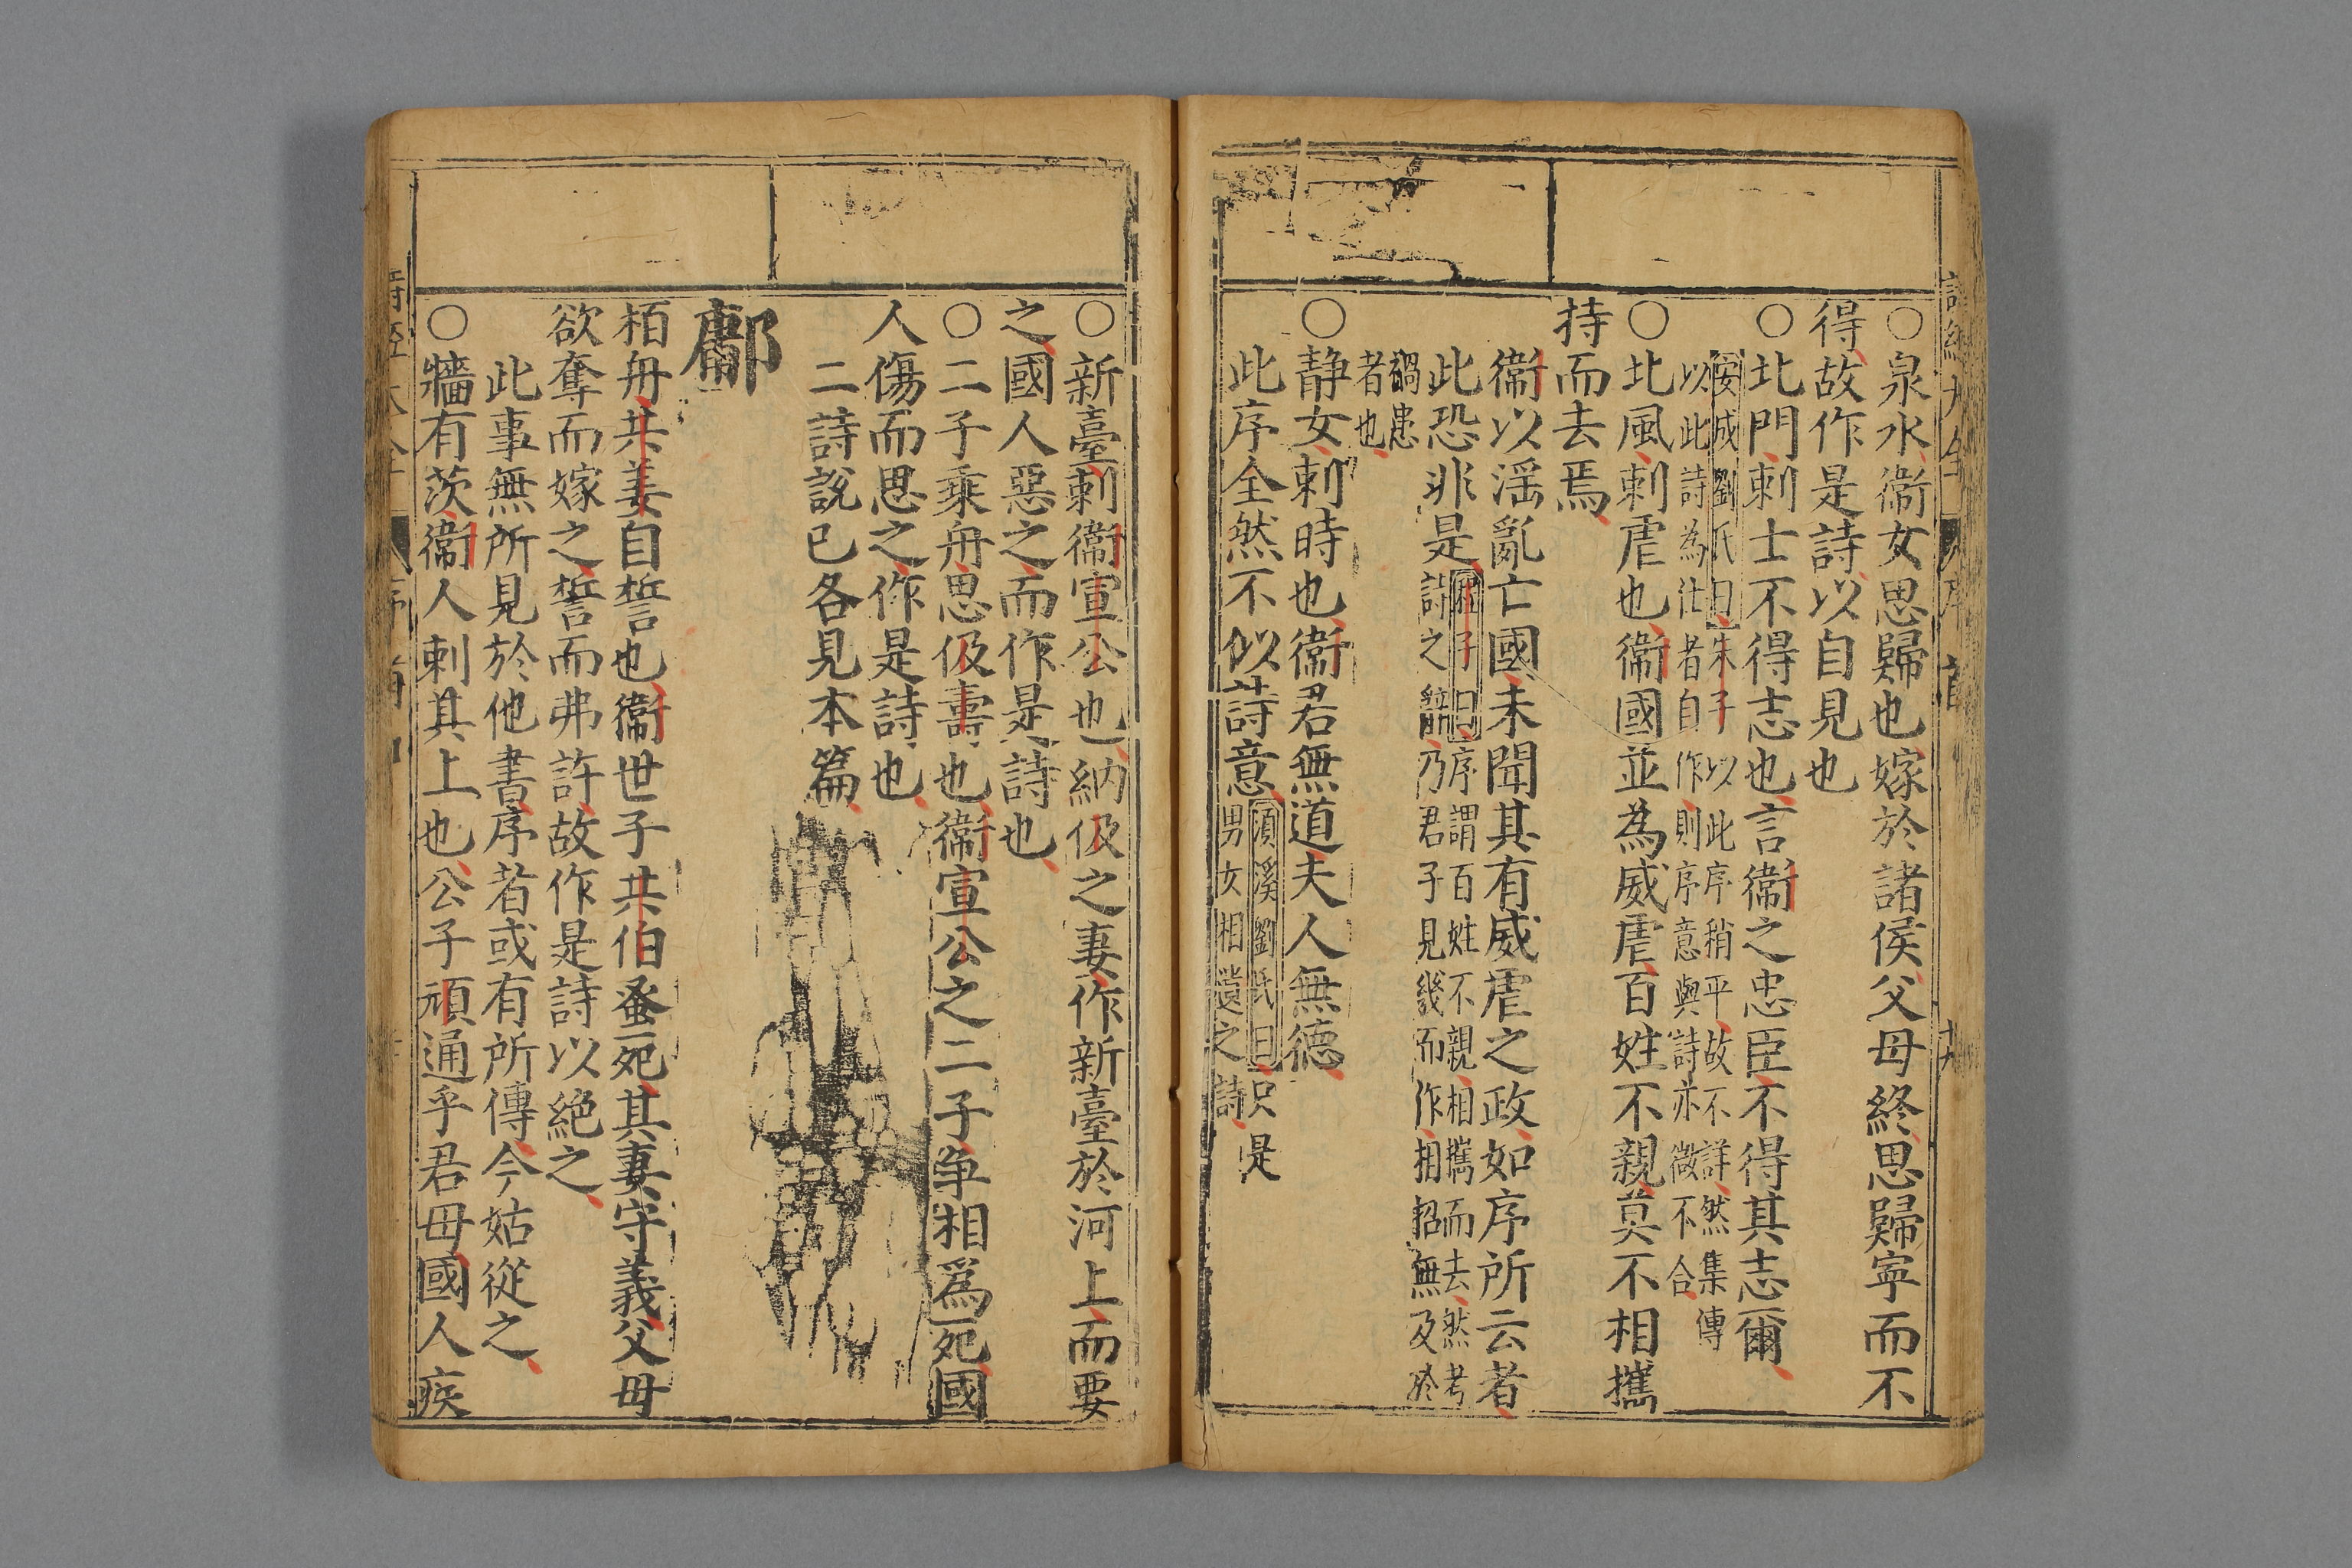 ○泉水衞女思歸也嫁於諸侯父母終思歸寧而不
得故作是詩以自見也
○北門刺士不得志也言衞之忠臣不得其志爾
安成劉氏曰朱子以此序稍平故不詳然集傳
以此詩為仕者自作則序意與詩亦微不合
○北風刺虐也衞國並為威虐百姓不親莫不相攜
持而去焉
衞以淫亂亡國未聞其有威虐之政如序所云者
此恐非是
程子曰序謂百姓不親相攜而去然考
詩之辭乃君子見幾而作相招無及於
禍患
者也
○静女刺時也衞君無道夫人無德
此序全然不似詩意
湏溪劉氏曰只是
男女相遺之詩
○新臺刺衞宣公也納伋之妻作新臺於河上而要
之國人惡之而作是詩也
○二子乘舟思伋壽也衞宣公之二子争相爲死國
人傷而思之作是詩也
二詩說已各見本篇
鄘
栢舟共姜自誓也衞世子共伯蚤死其妻守義父母
欲奪而嫁之誓而弗許故作是詩以絕之
此事無所見於他書序者或有所傳今姑從之
○牆有茨衞人刺其上也公子頑通乎君母國人疾